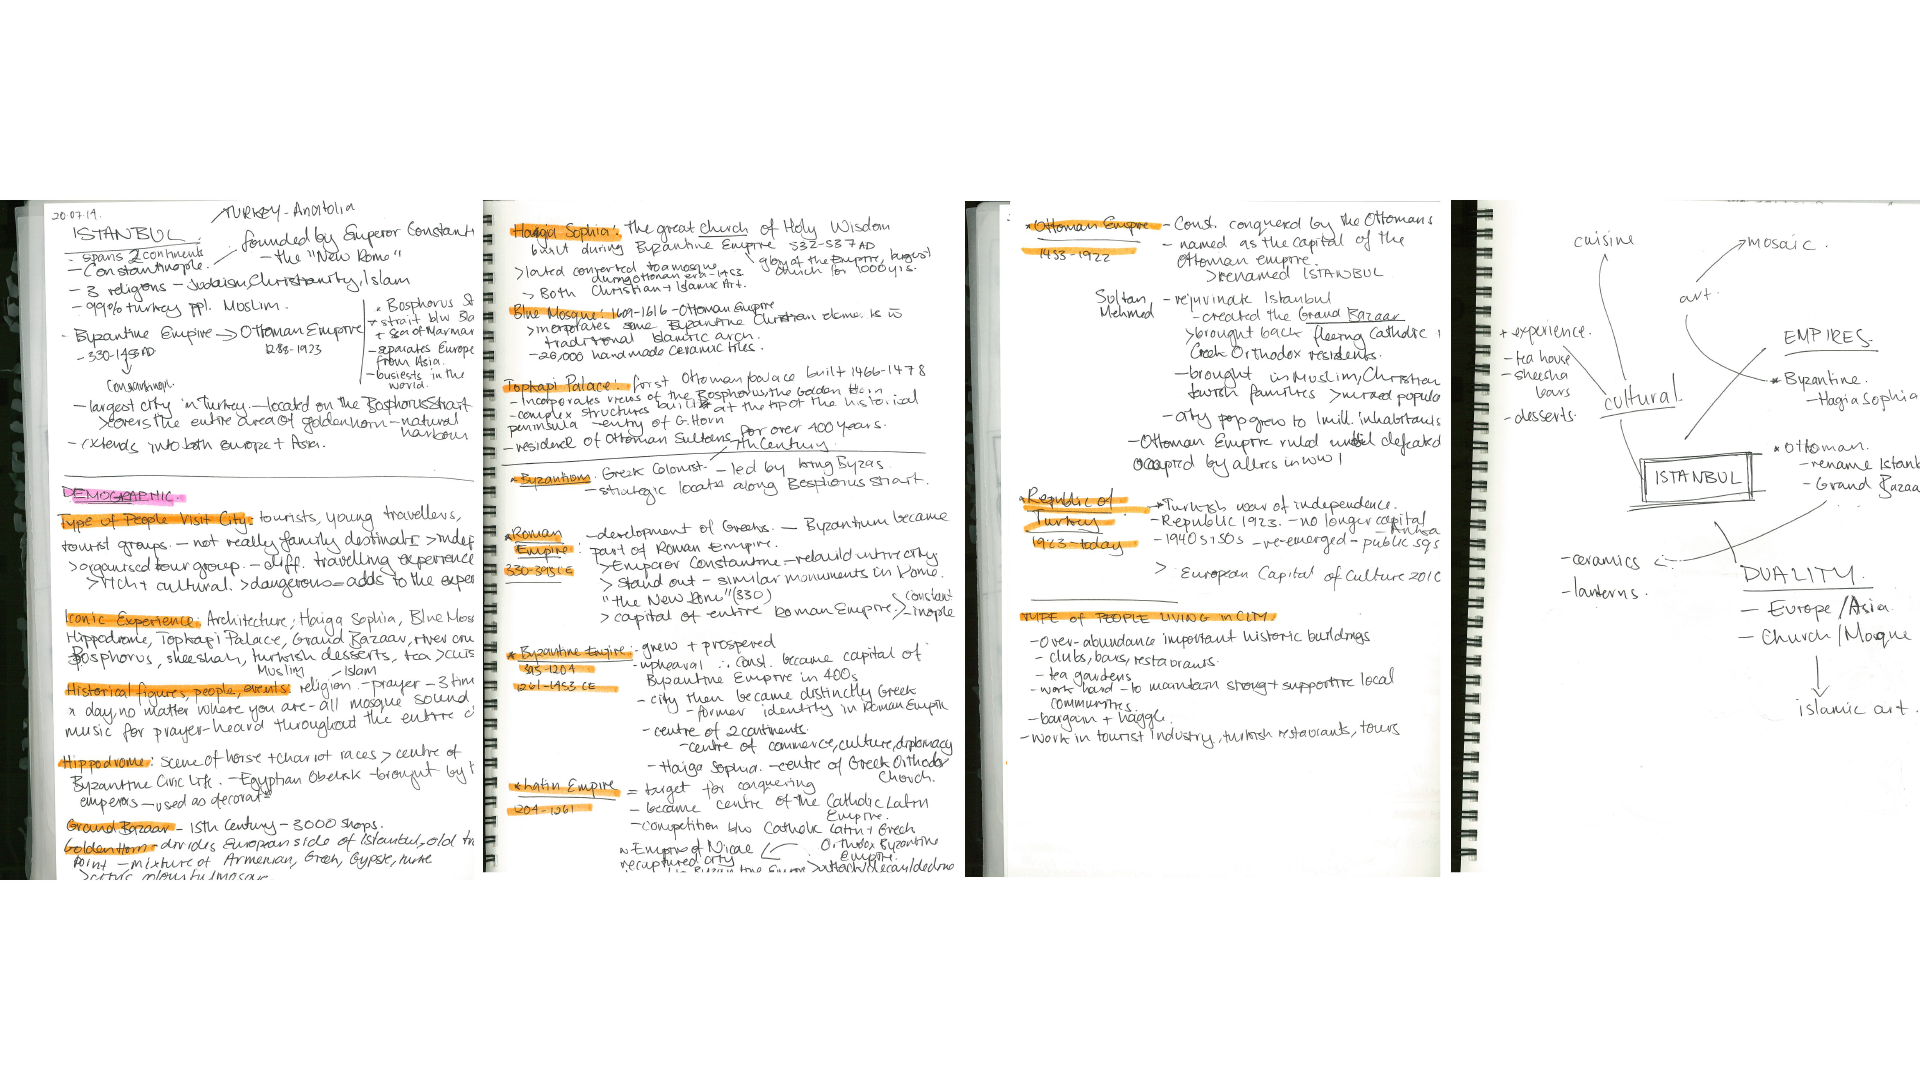 20.07.14.
TURKEY - Anatolia
ISTANBUL.
- spans 2 continents
- Constantinople.
founded by Emperor Constant
- the "New Rome"
- 3 religions - Judaism, Christianity, Islam
- 99% turkey ppl. Moslim.
- Byzantine Empire → Ottoman Empire
- 330-1453 AD
1288-1923
* Bosphorus St
→ strait b/w Bla
+ Sea of Marmar
- separates Europe
from Asia.
- busiests in the
world.
- largest city in Turkey. - located on the Bosphorus Strait
> covers the entire area of goldenhorn - natural
harbour
- extends into both europe + Asia.
DEMOGRAPHIC.
Type of People Visit City: tourists, young travellers,
tourist groups. - not really family destinatn > indep
> organised tour group. - diff. travelling experience
> rich + cultural. > dangerous = adds to the exper
Iconic Experience: Architecture; Haiga Sophia, Blue Mos
Hippodrome, Topkapi Palace, Grand Bazaar, river cru
Bosphorus, sheeshah, turkish desserts, tea > cuis
Musling - Islam
Historical figures, people, events: religion. - prayer - 3 tim
a day, no matter where you are - all mosque sound
music for prayer - heard throughout the entire c
Hippodrome: scene of horse + chariot races > centre of
Byzantine Civic Life. - Egyptian Obelisk - brought by
emperors - used as decoratn
Grand Bazaar - 15th Century - 3000 shops.
Golden Horn - divides European side of Istanbul, old
point - mixture of Armenian, Greek, Gypsie, turke
Hagia Sophia: the great church of Holy Wisdom
built during Byzantine Empire 532-537 AD
glory of the Empire, largest
church for 1000 yrs.
> lated converted to a mosque
during ottoman era - 1453
> Both Christian + Islamic Art.
Blue Mosque: 1609-1616 - Ottoman Empire
> incorporates some Byzantine Christian eleme. ts w
traditional Islamic arch.
- 20,000 handmade ceramic tiles.
Topkapi Palace: first Ottoman palace built 1466-1478
- incorporates views of the Bosphorus, the Golden Horn
- complex structures built at the tip of the historical
peninsula - entry of G. Horn
- residence of Ottoman Sultans for over 400 years.
7th Century.
* Byzantiom. Greek Colonist. - led by king Byzas.
- strategic locatn along Bosphorus strait.
* Roman
Empire:
330-395 CE
- development of Greeks. - Byzantium became
part of Roman Empire.
> Emperor Constantine - rebuild entire city
> stand out - similar monuments in Rome.
"the New Rome" (330)
> capital of entire Roman Empire. > Constant
- inople
* Byzantine Empire:
395-1204
1261-1453 CE
- grew + prospered
- upheaval ∴ Const. became capital of
Byzantine Empire in 400s
- city then became distinctly Greek
- former identity in Roman Empire
- centre of 2 continents.
- centre of commerce, culture, diplomacy
- Haiga Sophia. - centre of Greek Orthodox
Church.
* Latin Empire
1204-1261
= target for conquering
- became centre of the Catholic Latin
Empire.
- competition b/w Catholic Latin + Greek
Orthodox Byzantine
Empire.
Empire of Nicae
recaptured city
* Ottoman Empire
1453-1922
- Const. conquered by the Ottomans
- named as the capital of the
Ottoman empire.
> renamed ISTANBUL
Sultan
Mehmed
- rejuvinate Istanbul
- created the Grand Bazaar
> brought back fleeing Catholic
Greek Orthodox residents.
- brought in Muslim, Christian
Jewish families > mixed popula
- city pop grew to 1 mill. inhabitants
- Ottoman Empire ruled until defeated
occupied by allies in WW1
* Republic of
Turkey
1923-today
→ Turkish war of independence.
- Republic 1923. - no longer capital
- Ankara
- 1940s + 50s - re-emerged - public sqs
> European Capital of Culture 2010
TYPE of PEOPLE LIVING in CITY.
- Over-abundance important historic buildings
- clubs, bars, restaurants.
- tea gardens
- work hard - to maintain strong + supportive local
communities.
- bargain + haggle.
- work in tourist industry, turkish restaurants, tours
cuisine
mosaic.
art.
+ experience.
- tea house
- sheesha
bars
- desserts.
cultural
EMPIRES.
* Byzantine.
- Hagia Sophia
* Ottoman.
- rename Istanb
- Grand Bazaa
ISTANBUL
- ceramics
- lanterns.
DUALITY.
- Europe/Asia
- Church/Mosque
islamic art.